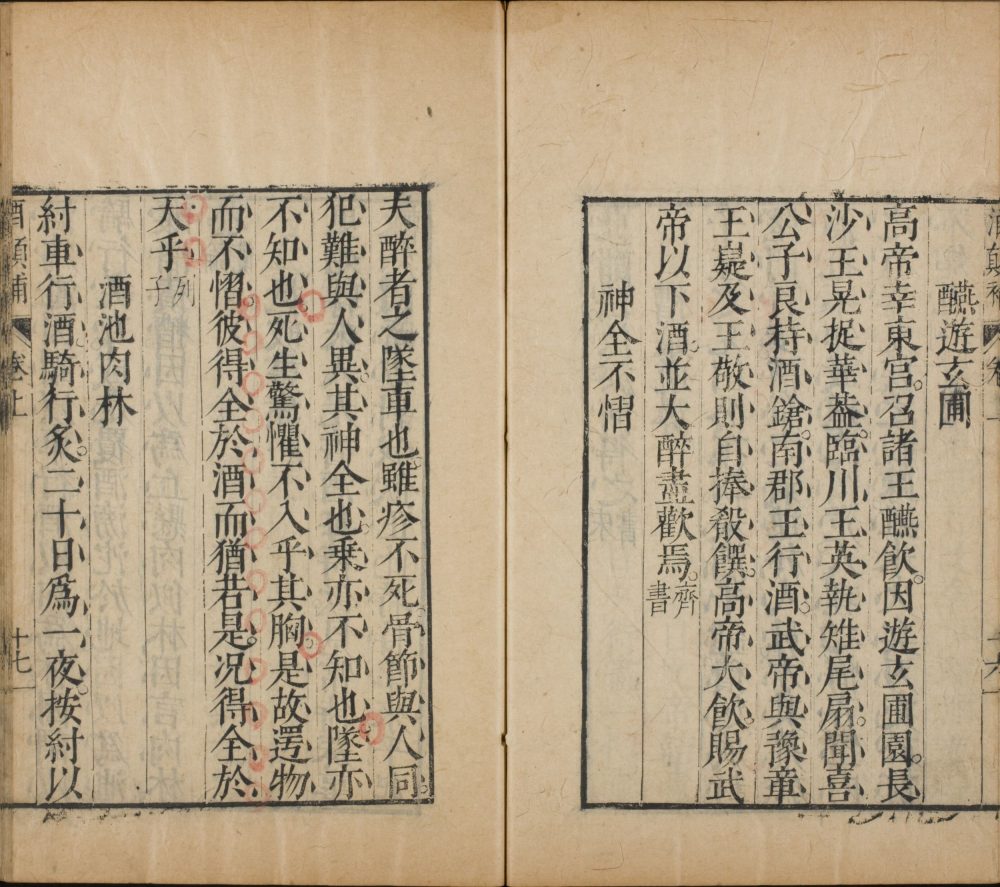 酒顛補 卷上
醼遊玄圃
高帝幸東宮。召諸王醼飲。因遊玄圃園。長
沙王晃捉華葢。臨川王英執雉尾扇。聞喜
公子良持酒鎗。南郡王行酒。武帝與豫章
王嶷及王敬則自捧殽饌。高帝大飲。賜武
帝以下酒。並大醉盡歡焉。齊書
神全不慴
夫醉者之墜車也。雖疹不死。骨節與人同。
犯難與人異。其神全也。乗亦不知也。墜亦
不知也。死生驚懼。不入乎其胸。是故遌物
而不慴。彼得全於酒而猶若是。况得全於
天乎列子
酒池肉林
紂車行酒。騎行炙。二十日爲一夜。按紂以
酒顛補 卷上 十七